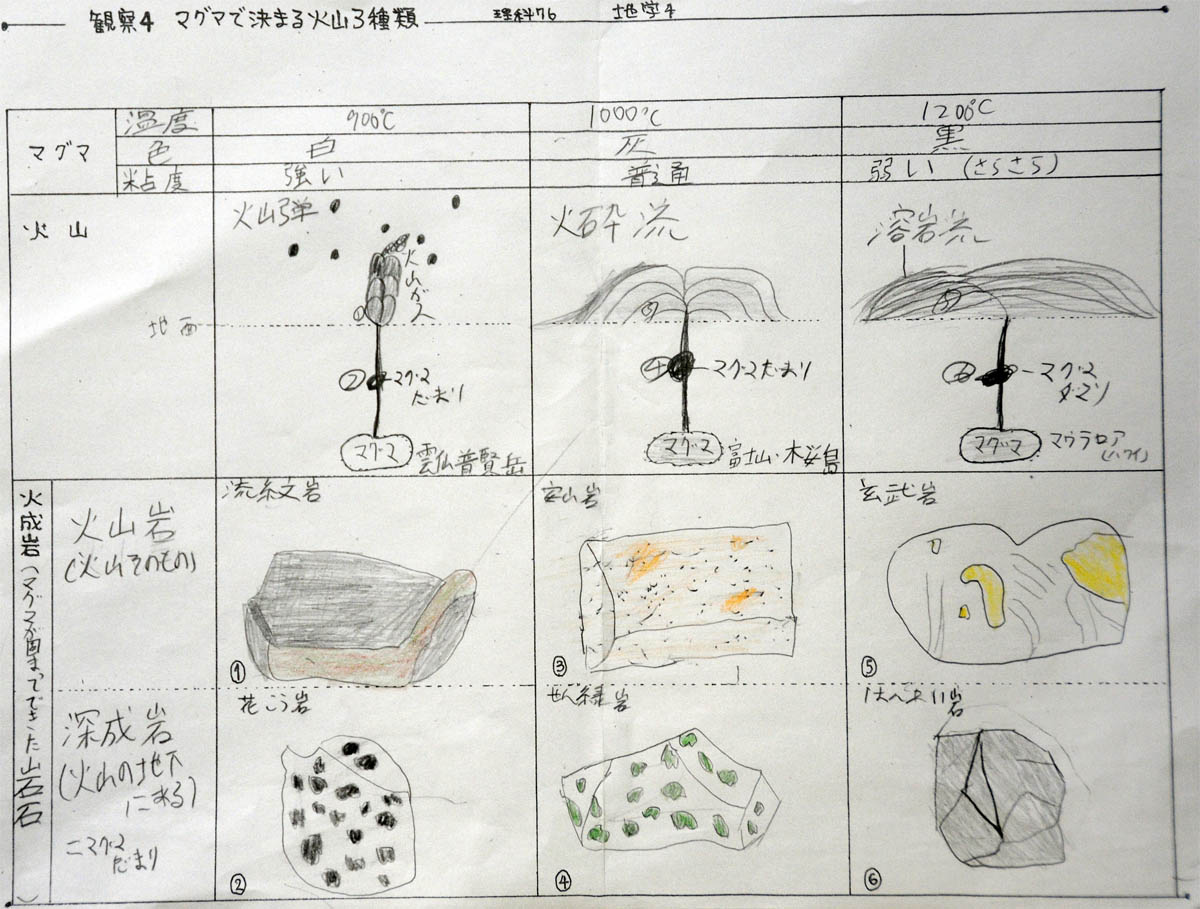 観察4 マグマで決まる火山3種類 理科76 地学4
マグマ
温度 900℃ 1000℃ 1200℃
色 白 灰 黒
粘度 強い 普通 弱い (さらさら)
火山
火山弾
火山ガス
①
地面
②
マグマ
だまり
マグマ
雲仙普賢岳
火砕流
③
④
マグマだまり
マグマ
富士山・桜島
溶岩流
⑤
⑥
マグマ
ダマリ
マグマ
マウラロア
(ハワイ)
火成岩(マグマが固まってできた岩石)
火山岩
(火山そのもの)
流紋岩
①
安山岩
③
玄武岩
⑤
深成岩
(火山の地下
にある)
=マグマ
だまり
花こう岩
②
せん緑岩
④
はんれい岩
⑥